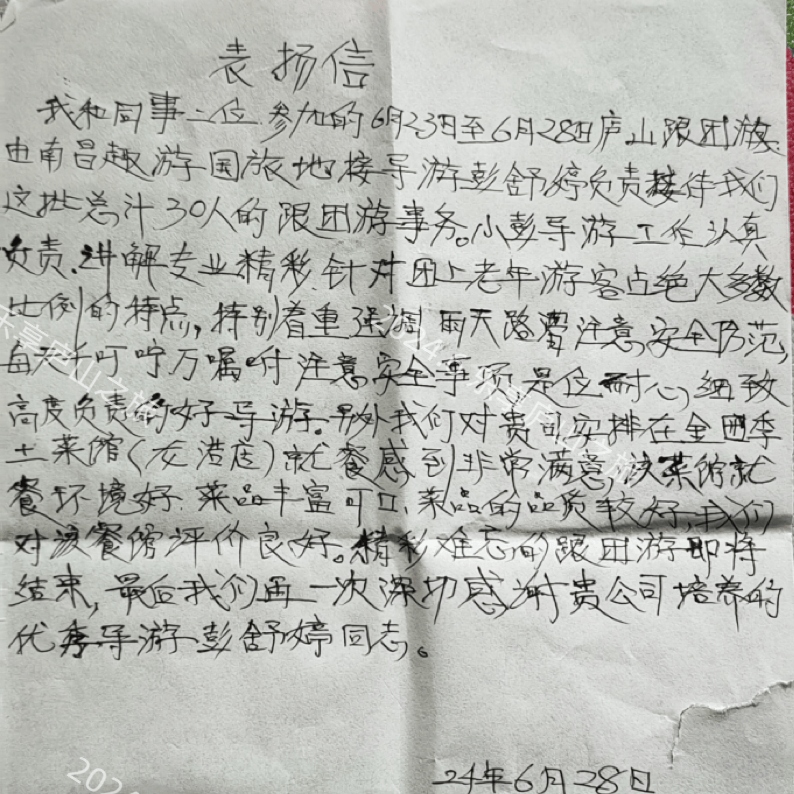 表扬信
我和同事二位.参加的6月23日至6月28日庐山跟团游.
由南昌趣游国旅地接导游彭舒婷负责接待我们
这批总计30人的跟团游事务。小彭导游工作认真
负责.讲解专业精彩.针对团上老年游客占绝大多数
比例的特点,特别着重强调雨天路滑注意安全防范,
每天千叮咛万嘱咐注意安全事项是位耐心,细致
高度负责的好导游。另外我们对贵司安排在全团季
土菜馆(友港店)就餐感到非常满意,该菜馆就
餐环境好.菜品丰富可口.菜品的品质较好,我们
对该餐馆评价良好。精彩难忘的跟团游即将
结束,最后我们再一次深切感谢贵公司培养的
优秀导游彭舒婷同志。
24年6月28日